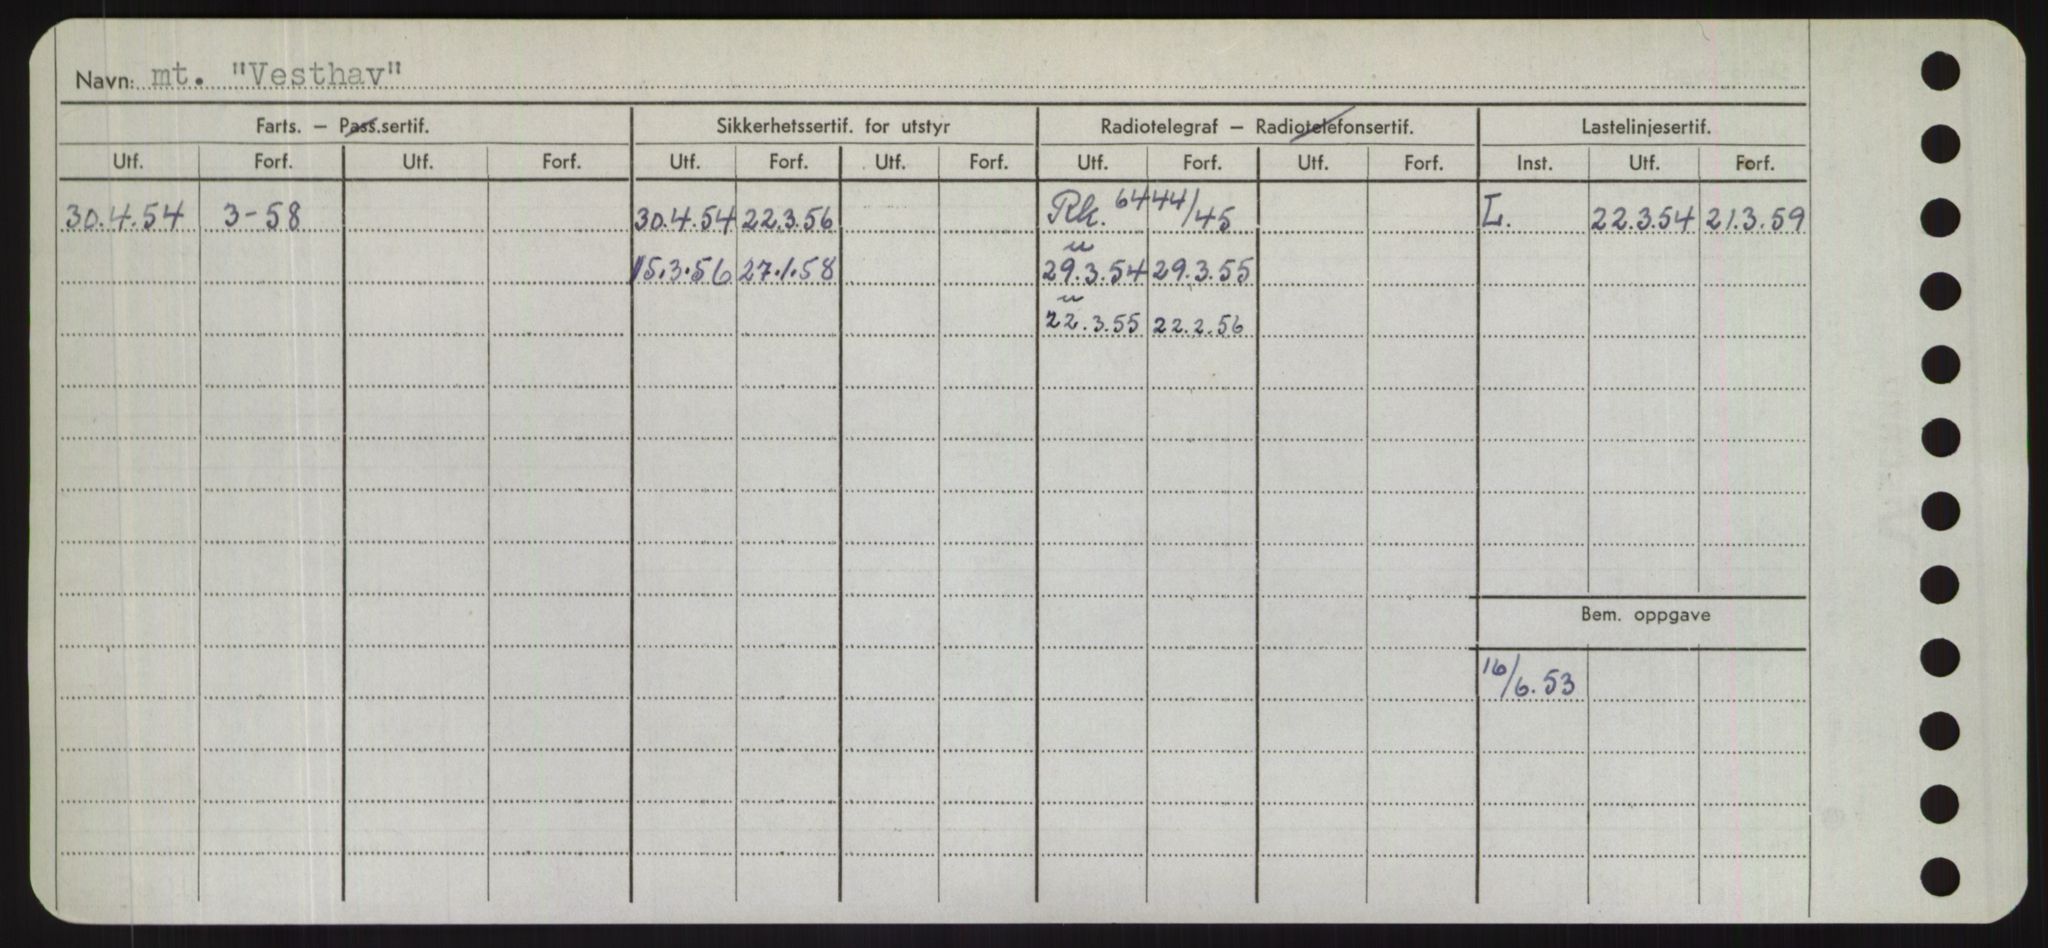 Navn: mt. "Vesthav"
Farts. – Pass.sertif. Sikkerhetssertif. for utstyr Radiotelegraf – Radiotelefonsertif. Lastelinjesertif.
Utf. Forf. Utf. Forf. Utf. Forf. Utf. Forf. Utf. Forf. Utf. Forf. Inst. Utf. Forf.
30.4.54 3-58 30.4.54 22.3.56 Rk. 6444/45 L. 22.3.54 21.3.59
15.3.56 27.1.58 29.3.54 29.3.55
22.3.55 22.2.56
Bem. oppgave
16/6.53